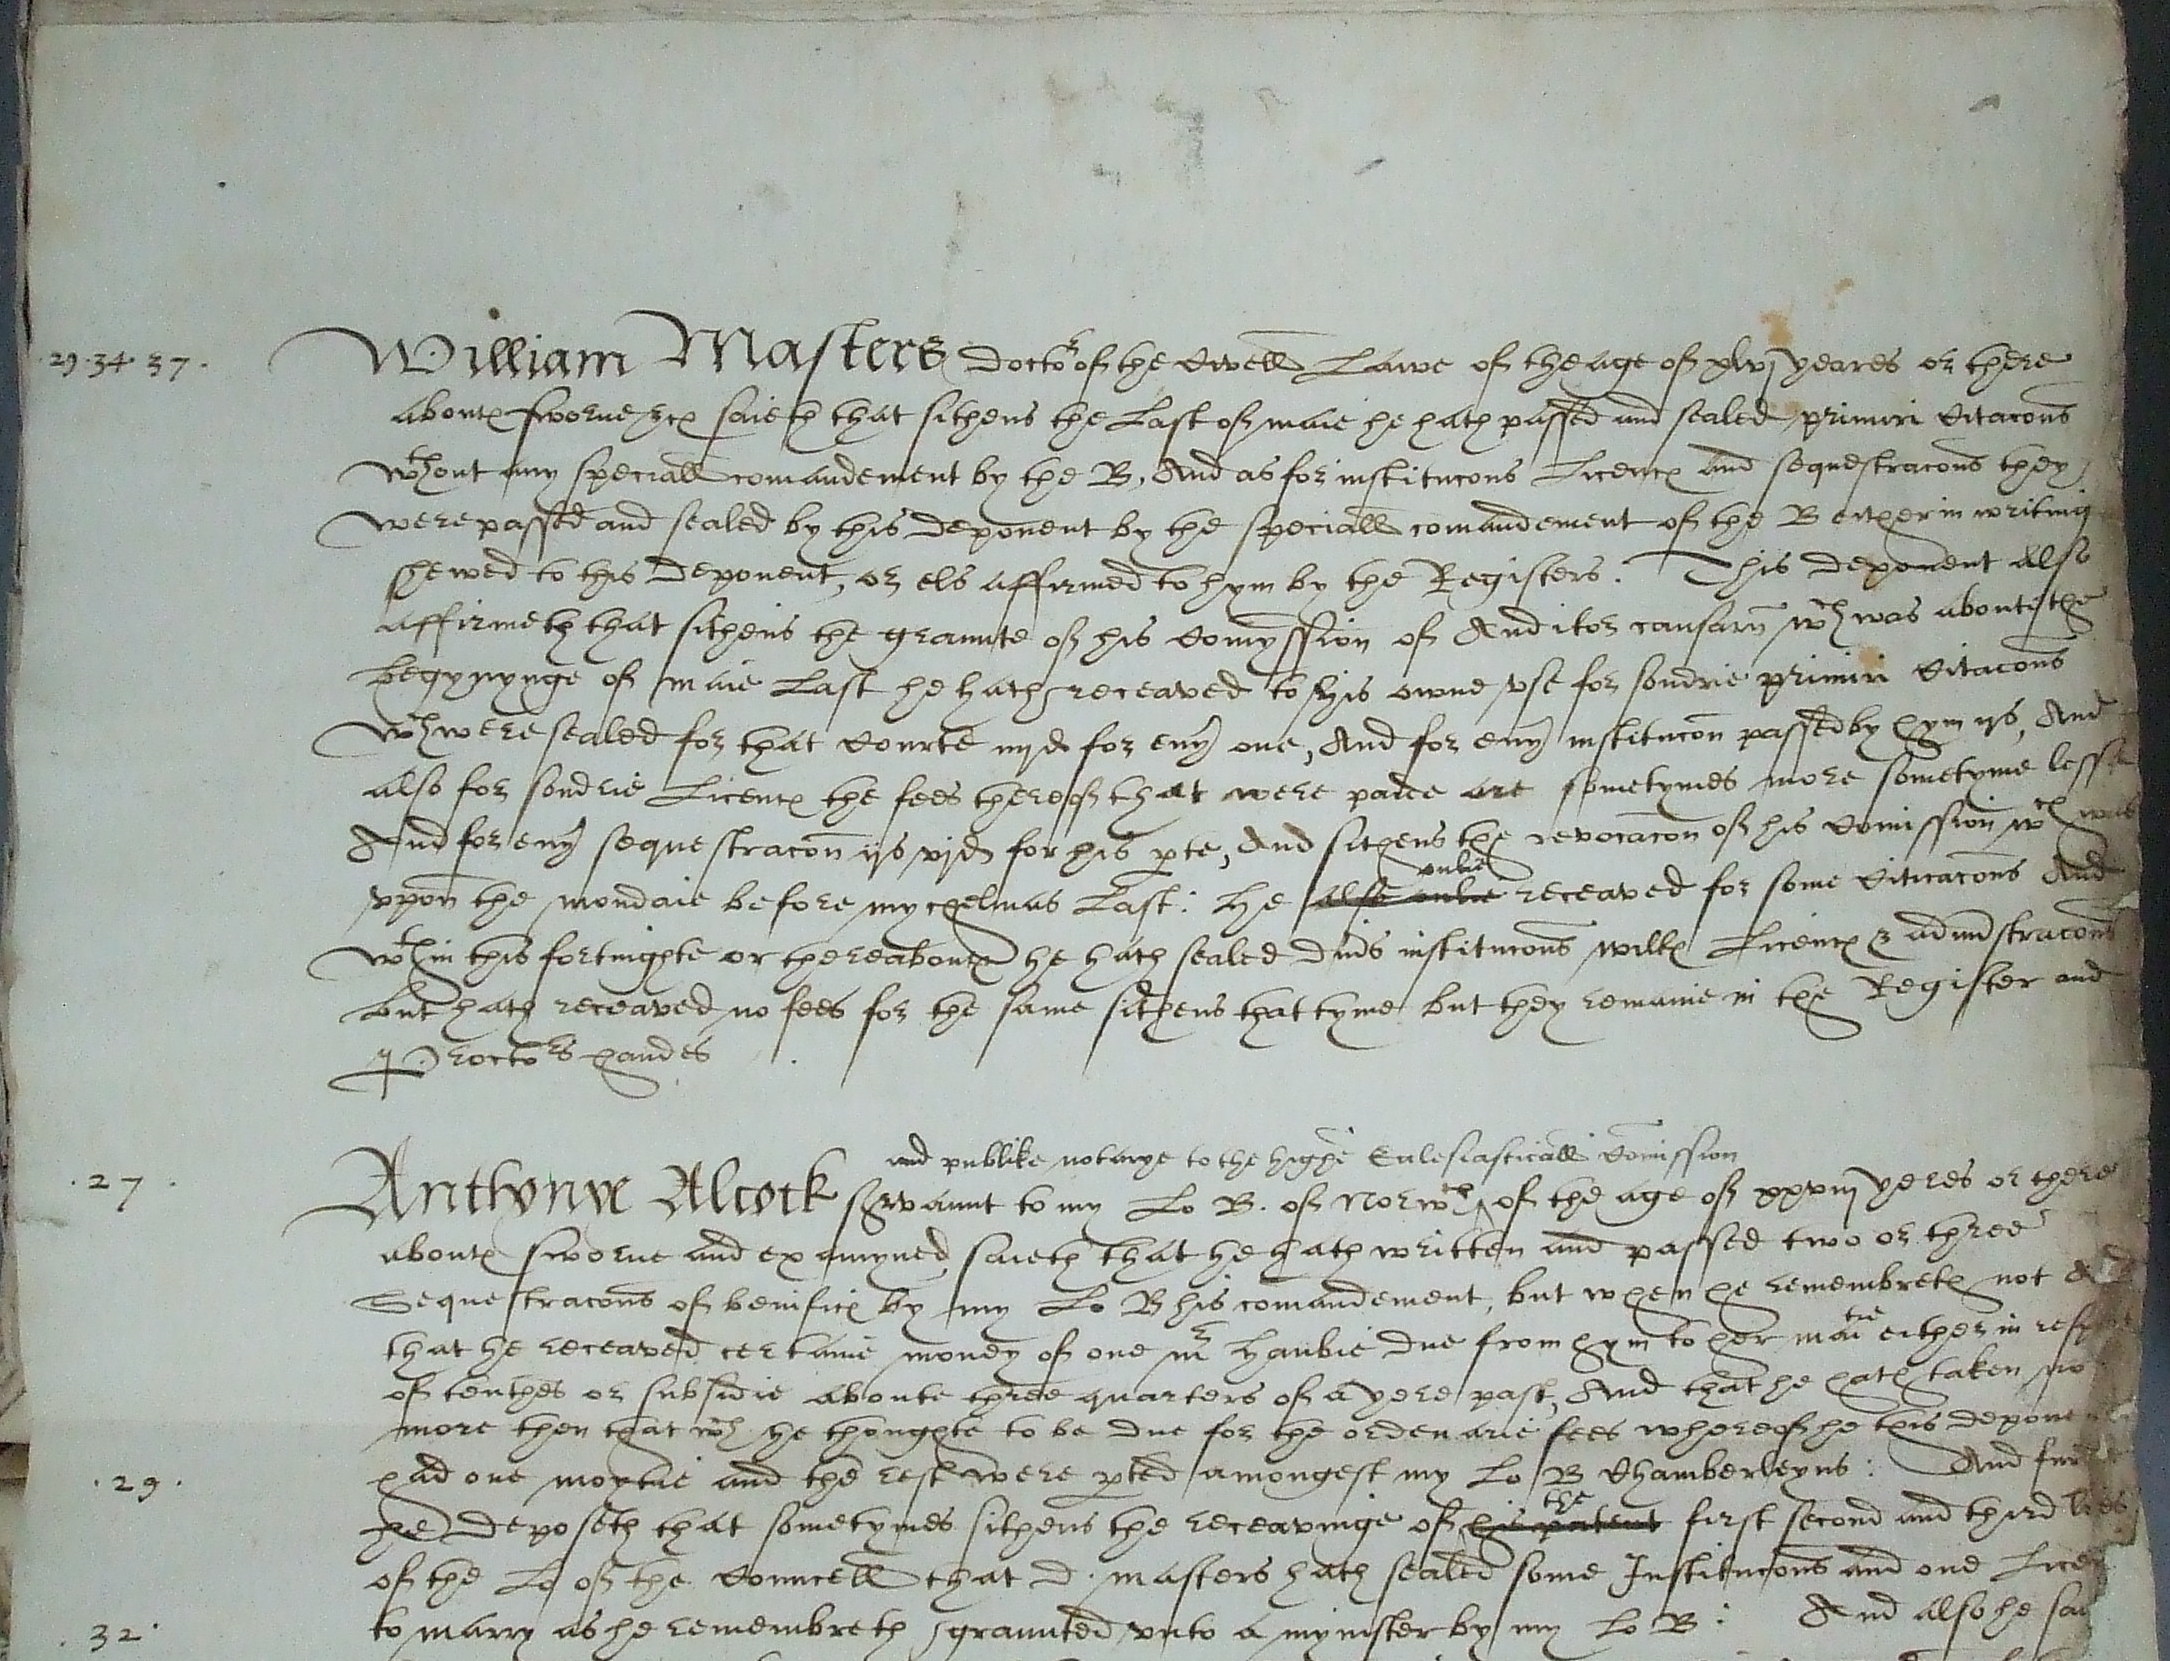 .29.34 37. William Masters doctor of the Civell Lawe of the age of xlvj yeares or there
aboute sworne etc saieth that sithens the Last of maie he hath passed and sealed primiri Citacons
wthout any speciall comandement by the B, And as for institucons Licence and sequestracons they
were passed and sealed by this deponent by the speciall comandement of the B either in writing
shewed to this deponent, or els affirmed to hym by the Registers. This deponent also
affirmeth that sithens the graunte of his Comyssion of Auditor causarum wch was aboute the
begynynge of maie Last he hath receaved to his owne vse for sondrie primiri Citacons
wch were sealed for that Courte iiijd for eny one, And for eny institucon passed by hym ijs, And
also for sondrie Licence the fees thereof that were paide are sometymes more sometyme lesse
And for eny sequestracon ijs vjd for his pte, And sithens the revocacon of his Comission wch was
vppon the mondaie before mychelmas Last: he also onlie onlie receaved for some Citacons And
wthin this fortnighte or thereaboute he hath sealed diuds institucons wills Licence & admstracons
but hath receaved no fees for the same sithens that tyme but they remaine in the Register and
Proctors handes
and publike notarye to the highe Eclesiasticall Comission
.27. Anthonye Alcock servaunt to my Lo B. of Norwch of the age of xxviij yeres or there
aboute sworne and examyned saieth that he hath written and passed two or three
Sequestracons of benifice by my Lo B his comandement, but when he remembreth not And
that he receaved certaine money of one mr Hanbie due from hym to her matie either in respect
of tenthes or subsidie aboute three quarters of a yere past, And that he hath taken no
more then that wch he thoughte to be due for the ordenarie fees whereof he this deponent
.29. had one moytie and the rest were pted amongest my Lo B Chamberleyns: And further
he deposeth that sometymes sithens the receavinge of his patent the first second and third lres
of the Lo of the Councell that D. masters hath sealed some Institucons and one Licen
.32. to marry as he remembreth graunted vnto a mynister by my Lo B: And also he sai